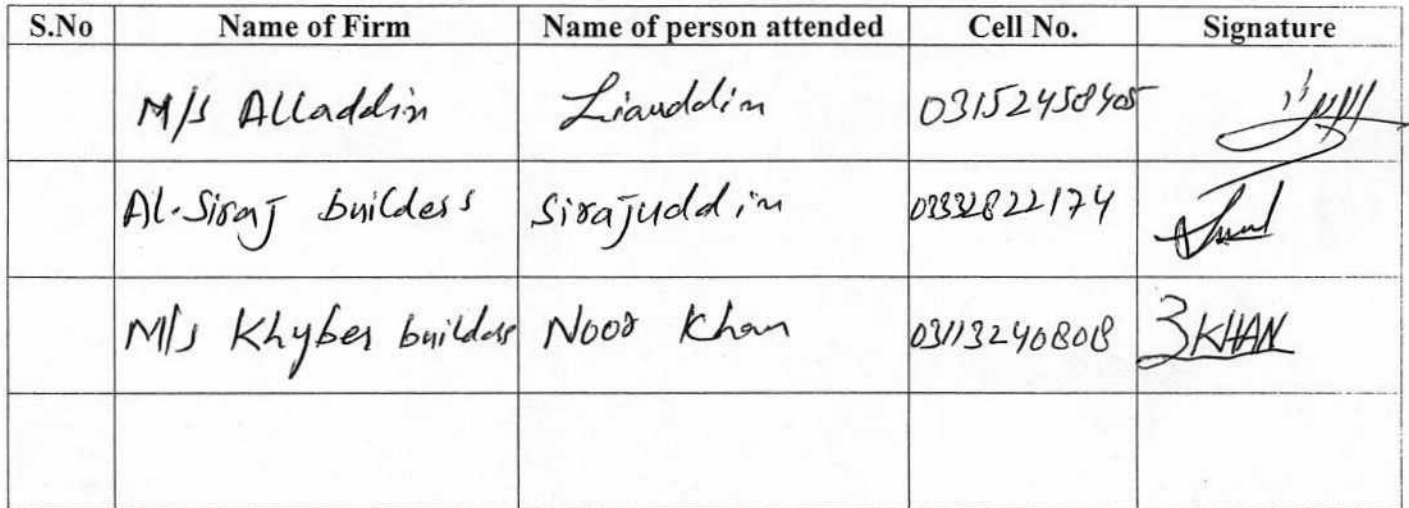 S.No Name of Firm Name of person attended Cell No. Signature
M/s Alladdin Liauddin 03152458405
Al-Siraj builders Sirajuddin 03332822174
M/s Khyber builders Noor Khan 03113240808 3KHAN